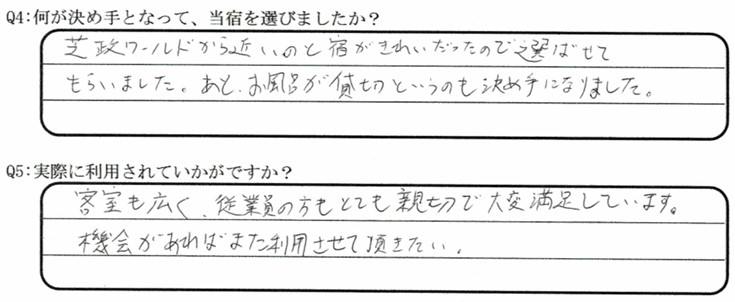 Q4:何が決め手となって、当宿を選びましたか?
芝政ワールドから近いのと宿がきれいだったので選ばせて
もらいました。あと、お風呂が貸切というのも決め手になりました。
Q5:実際に利用されていかがですか?
客室も広く、従業員の方もとても親切で大変満足しています。
機会があればまた利用させて頂きたい。